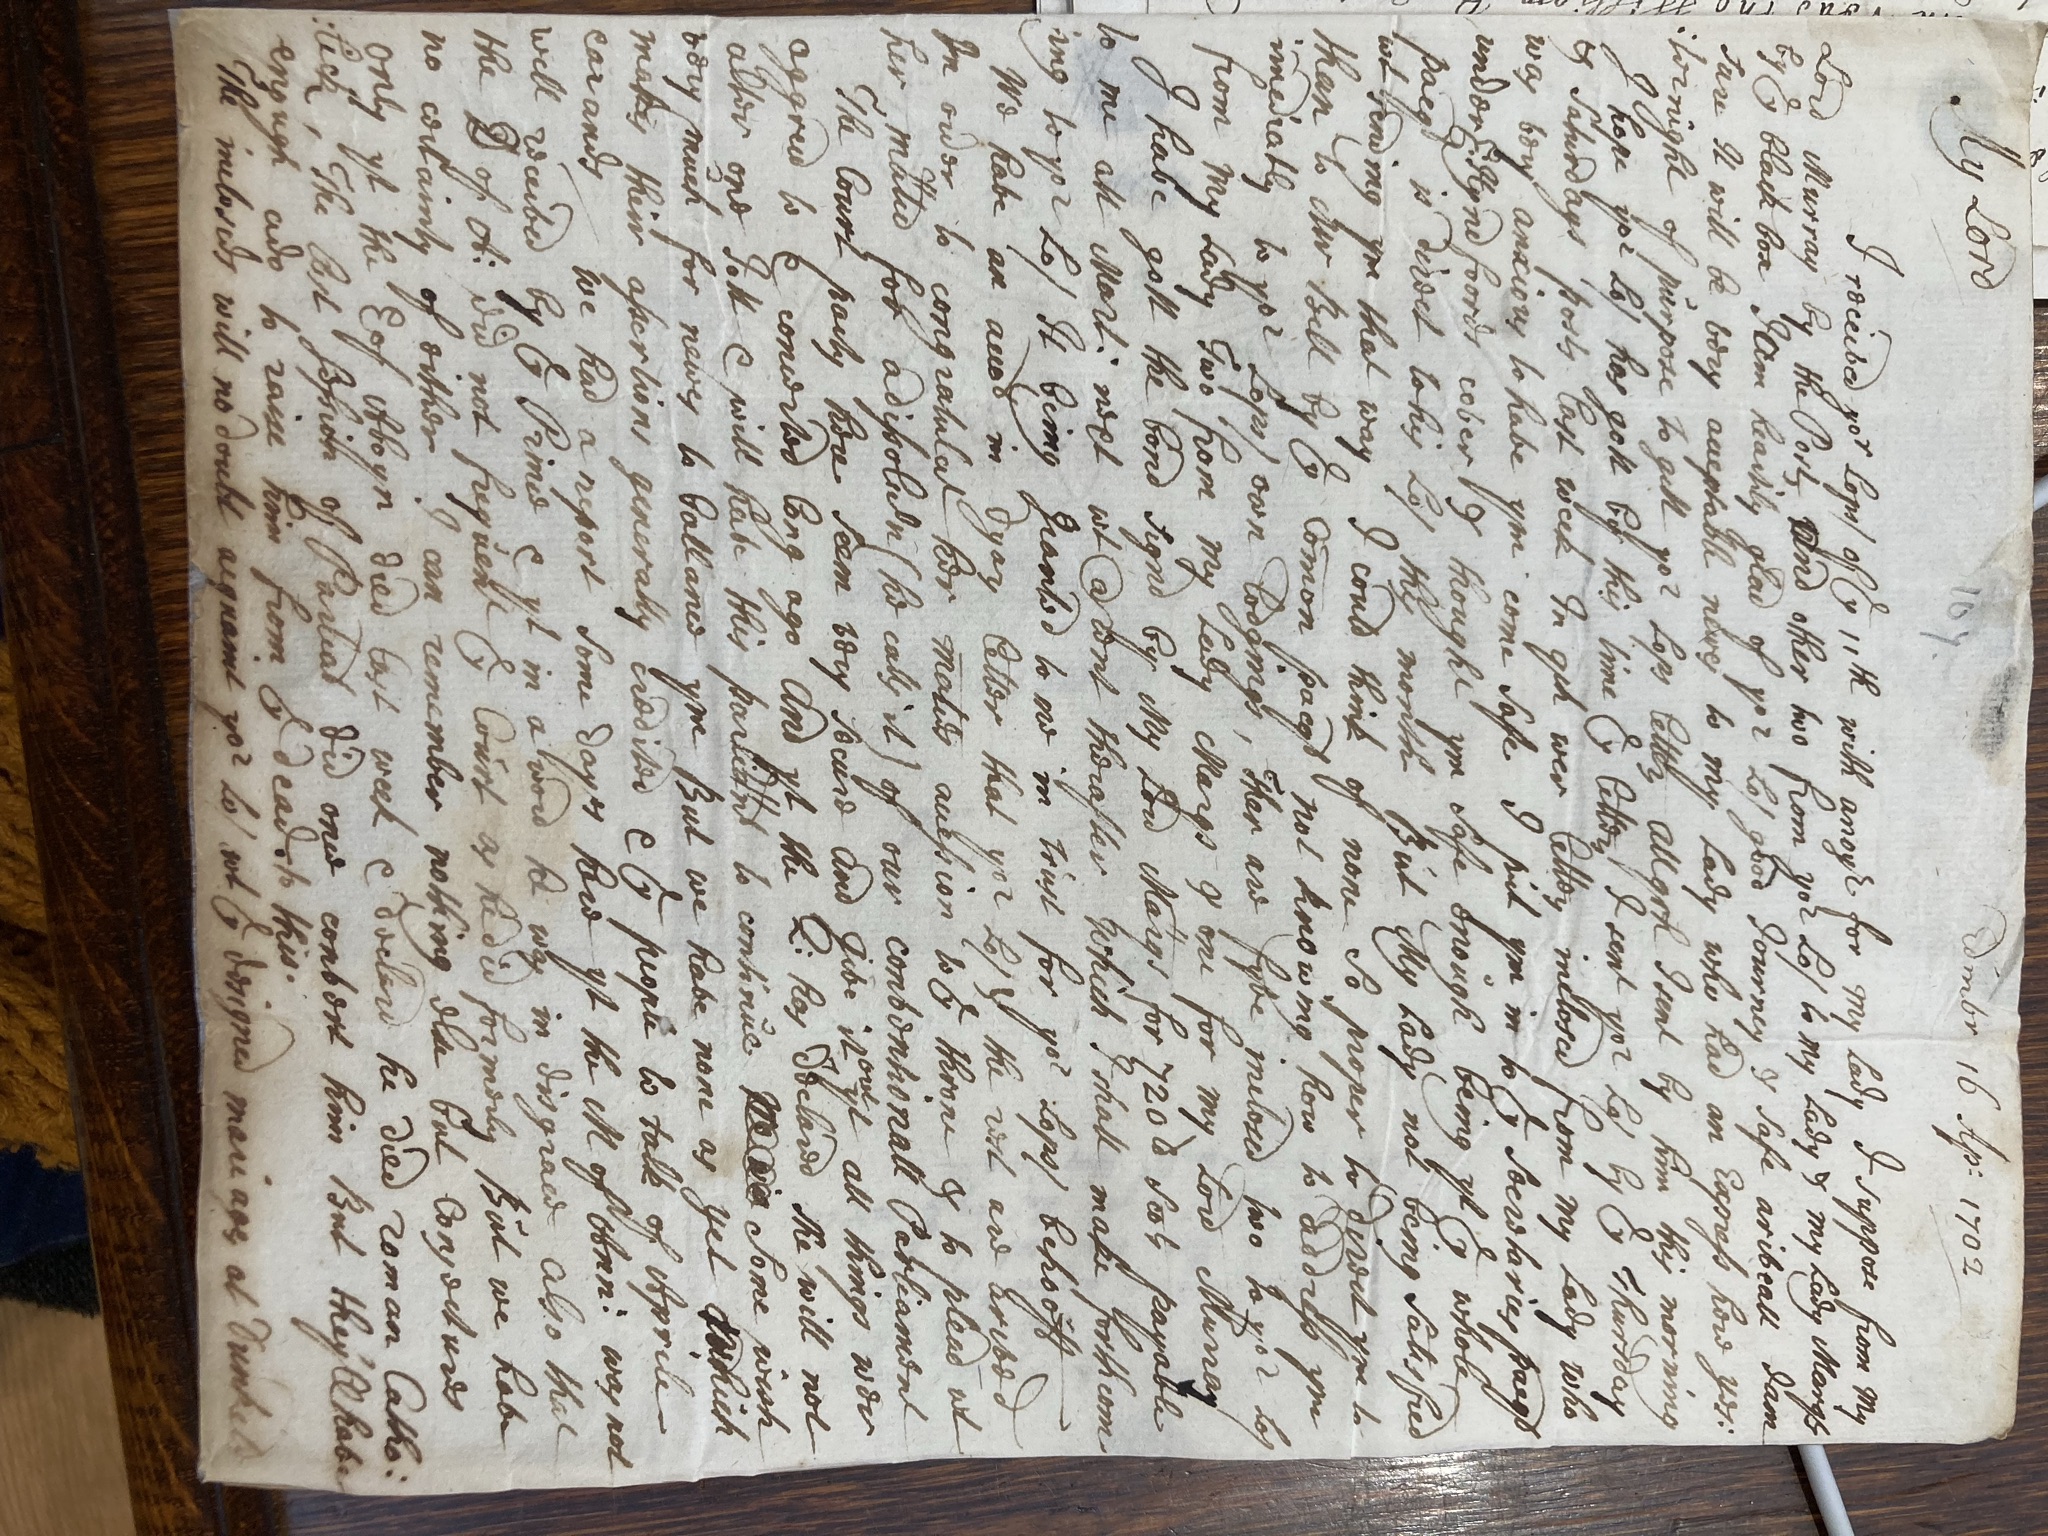 My Lord
107.
Edinbr 16 Ap: 1702
I received yor Lops/ of ye 11th with anoyr for my Lady I suppose from my
Lord Murray by the Post, And other two from yor Lo/ to my Lady & my Lady Marqs
by ye black box I am heartily glad of yor Lo/ good Journey & safe ariveall I am
sure It will be very acceptable newes to my Lady who had an Express here yes:
:ternight of purpose to gett yor Lops letters all qch I sent by him this morning
I hope yor Lo/ has gott by this time ye letters I sent yor Lo/ by ye Thursday
& Saturdays posts last week In qch wer letters inclosed from my Lady who
was very anxious to have ym come safe I put ym in to ye Secretaries pacqt
under E: Hyndfoords cover & thought ym safe enough being yt ye whole
pacqt is direct to his Lo/ this month But My Lady not being satisfied
wt sending ym that way I could think of none so proper to direct ym to
than to Mr Bell by ye Comon pacqt not knowing how to address ym
imediatly to yor Lops/ own lodgings, Ther are fyve inclosed two to yor Lo/
from my Lady Two from my Lady Marqs & one for my Lord Murray
I have gott the bond signd by My Lord Marqs for 720 lb Scots payable
to me att Mart: next wt @rent therafter which I shall make forthcom
ing to yor Lo/ It being granted to me in trust for yor Lops/ behooff
We have an accot in Dyars letter that yor Lo/ & the rest are arived
In order to congratulat her maties accession to ye throne & to plead wt
her matie for a dissolu'n (he calls it) of our conventionall Parliament
The Court party here seem very secure and give it out yt all things wer
aggreed to & concerted long ago And yt the Q: has declared she will not
alter one Jott & will have this parliamt to continue Some wish
very much for newes to ballance ym But we have none as yet which
makes their assertions generally credited & ye people to talk of Aprile
earands We had a report some dayes here yt the M of Ann: was not
well received by ye Prince & yt in a word he was in disgrace also that
the D of A: did not frequent ye Court as he did formerly But we have
no certainty of either I can remember nothing else but Conjectures
only yt the E of Aboyn died last week & declard he died roman Catho:
:lick, The last session of Parliat did once convert him But they'll have
enough ado to raise him from ye dead to this.
The incloseds will no doubt acquaint yor Lo/ wt ye designed mariages at Dunkeld